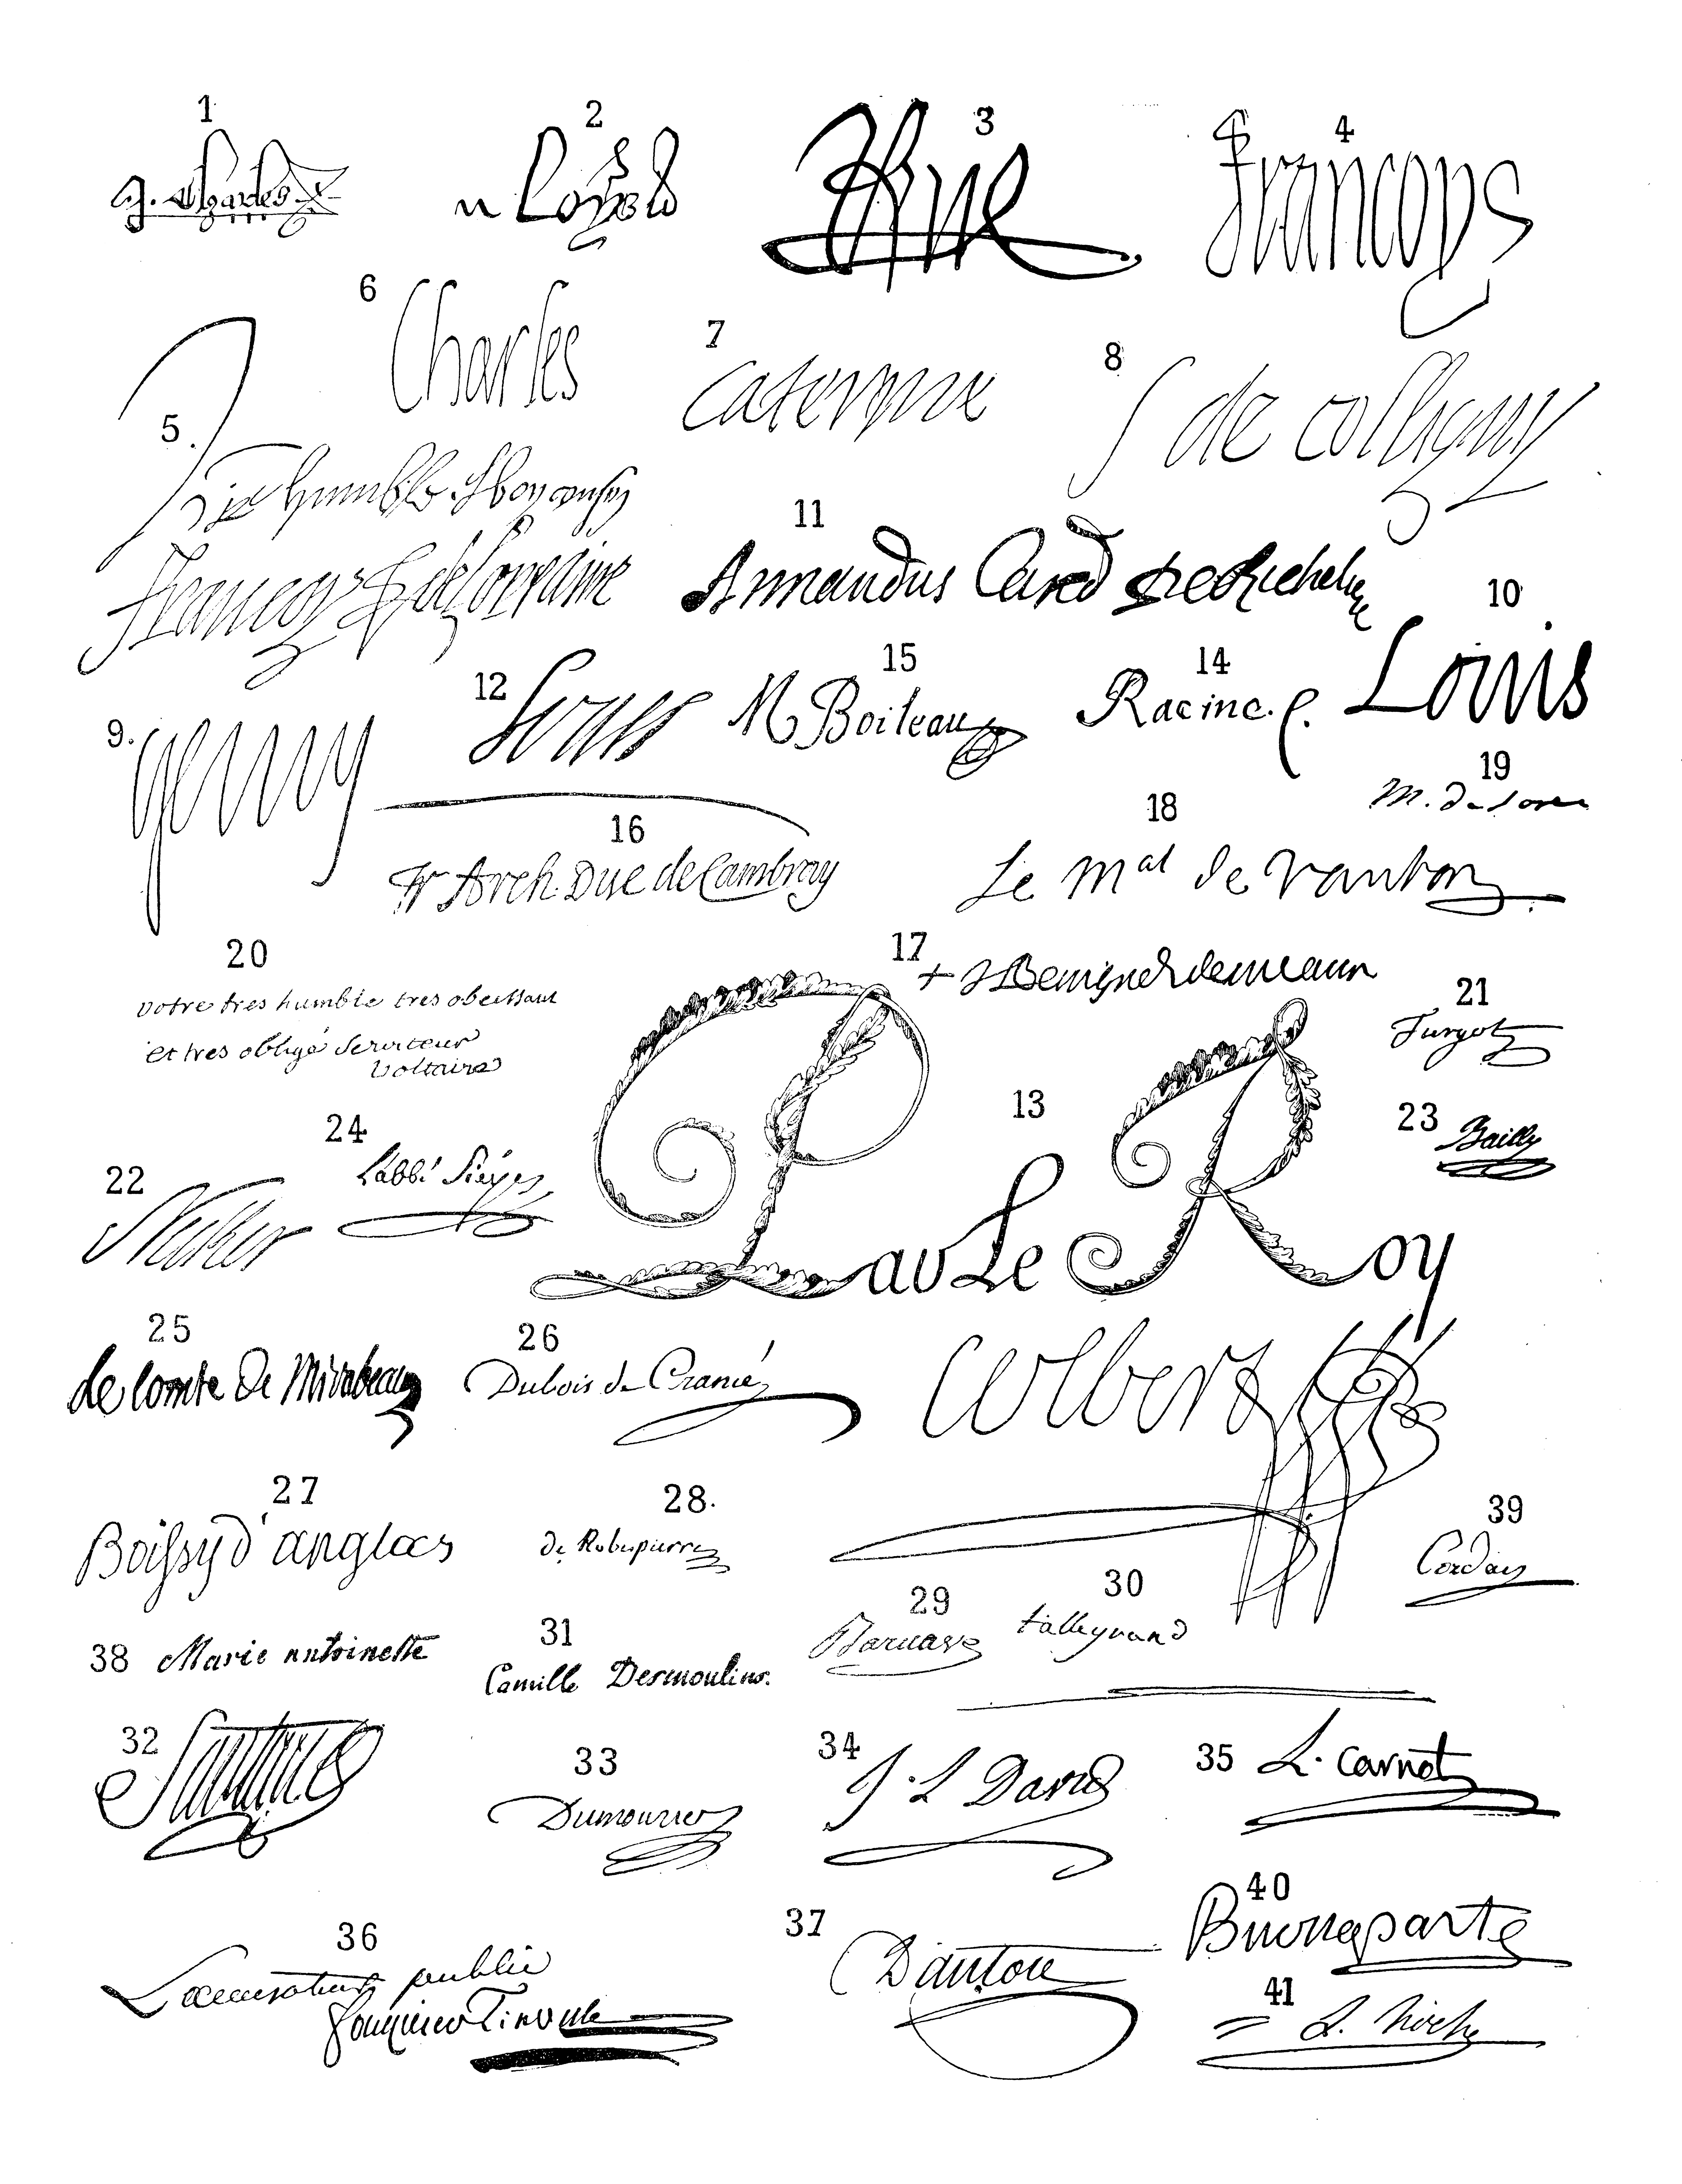 1
2
3
4
Charles
Françoys
6
Charles
7
Caterine
8
de colligny
5.
humble
Françoys de Lorraine
11
Armandus Card de Richelieu
10
Louis
9.
12
Louis
15
Boileau
14
Racine.
19
M. de
16
Fr Arch. Duc de Cambray
18
Le Mal de Vauban
17
+ J Benigne E. de Meaux
20
votre tres humble tres obeissant
et tres obligé serviteur
Voltaire
21
Turgot
13
Par Le Roy
Colbert
24
L'abbé Sieyes
23
Bailly
22
Necker
25
le comte de Mirabeau
26
Dubois de Crancé
27
Boissy d'anglas
28.
de Robespierre
39
Corday
29
Barnave
30
talleyrand
38
Marie antoinette
31
Camille Desmoulins.
32
Santerre
33
Dumouriez
34
J. L David
35
L. Carnot
36
L'accusateur public
Fouquier Tinville
37
Danton
40
Buonaparte
41
L. Hoche